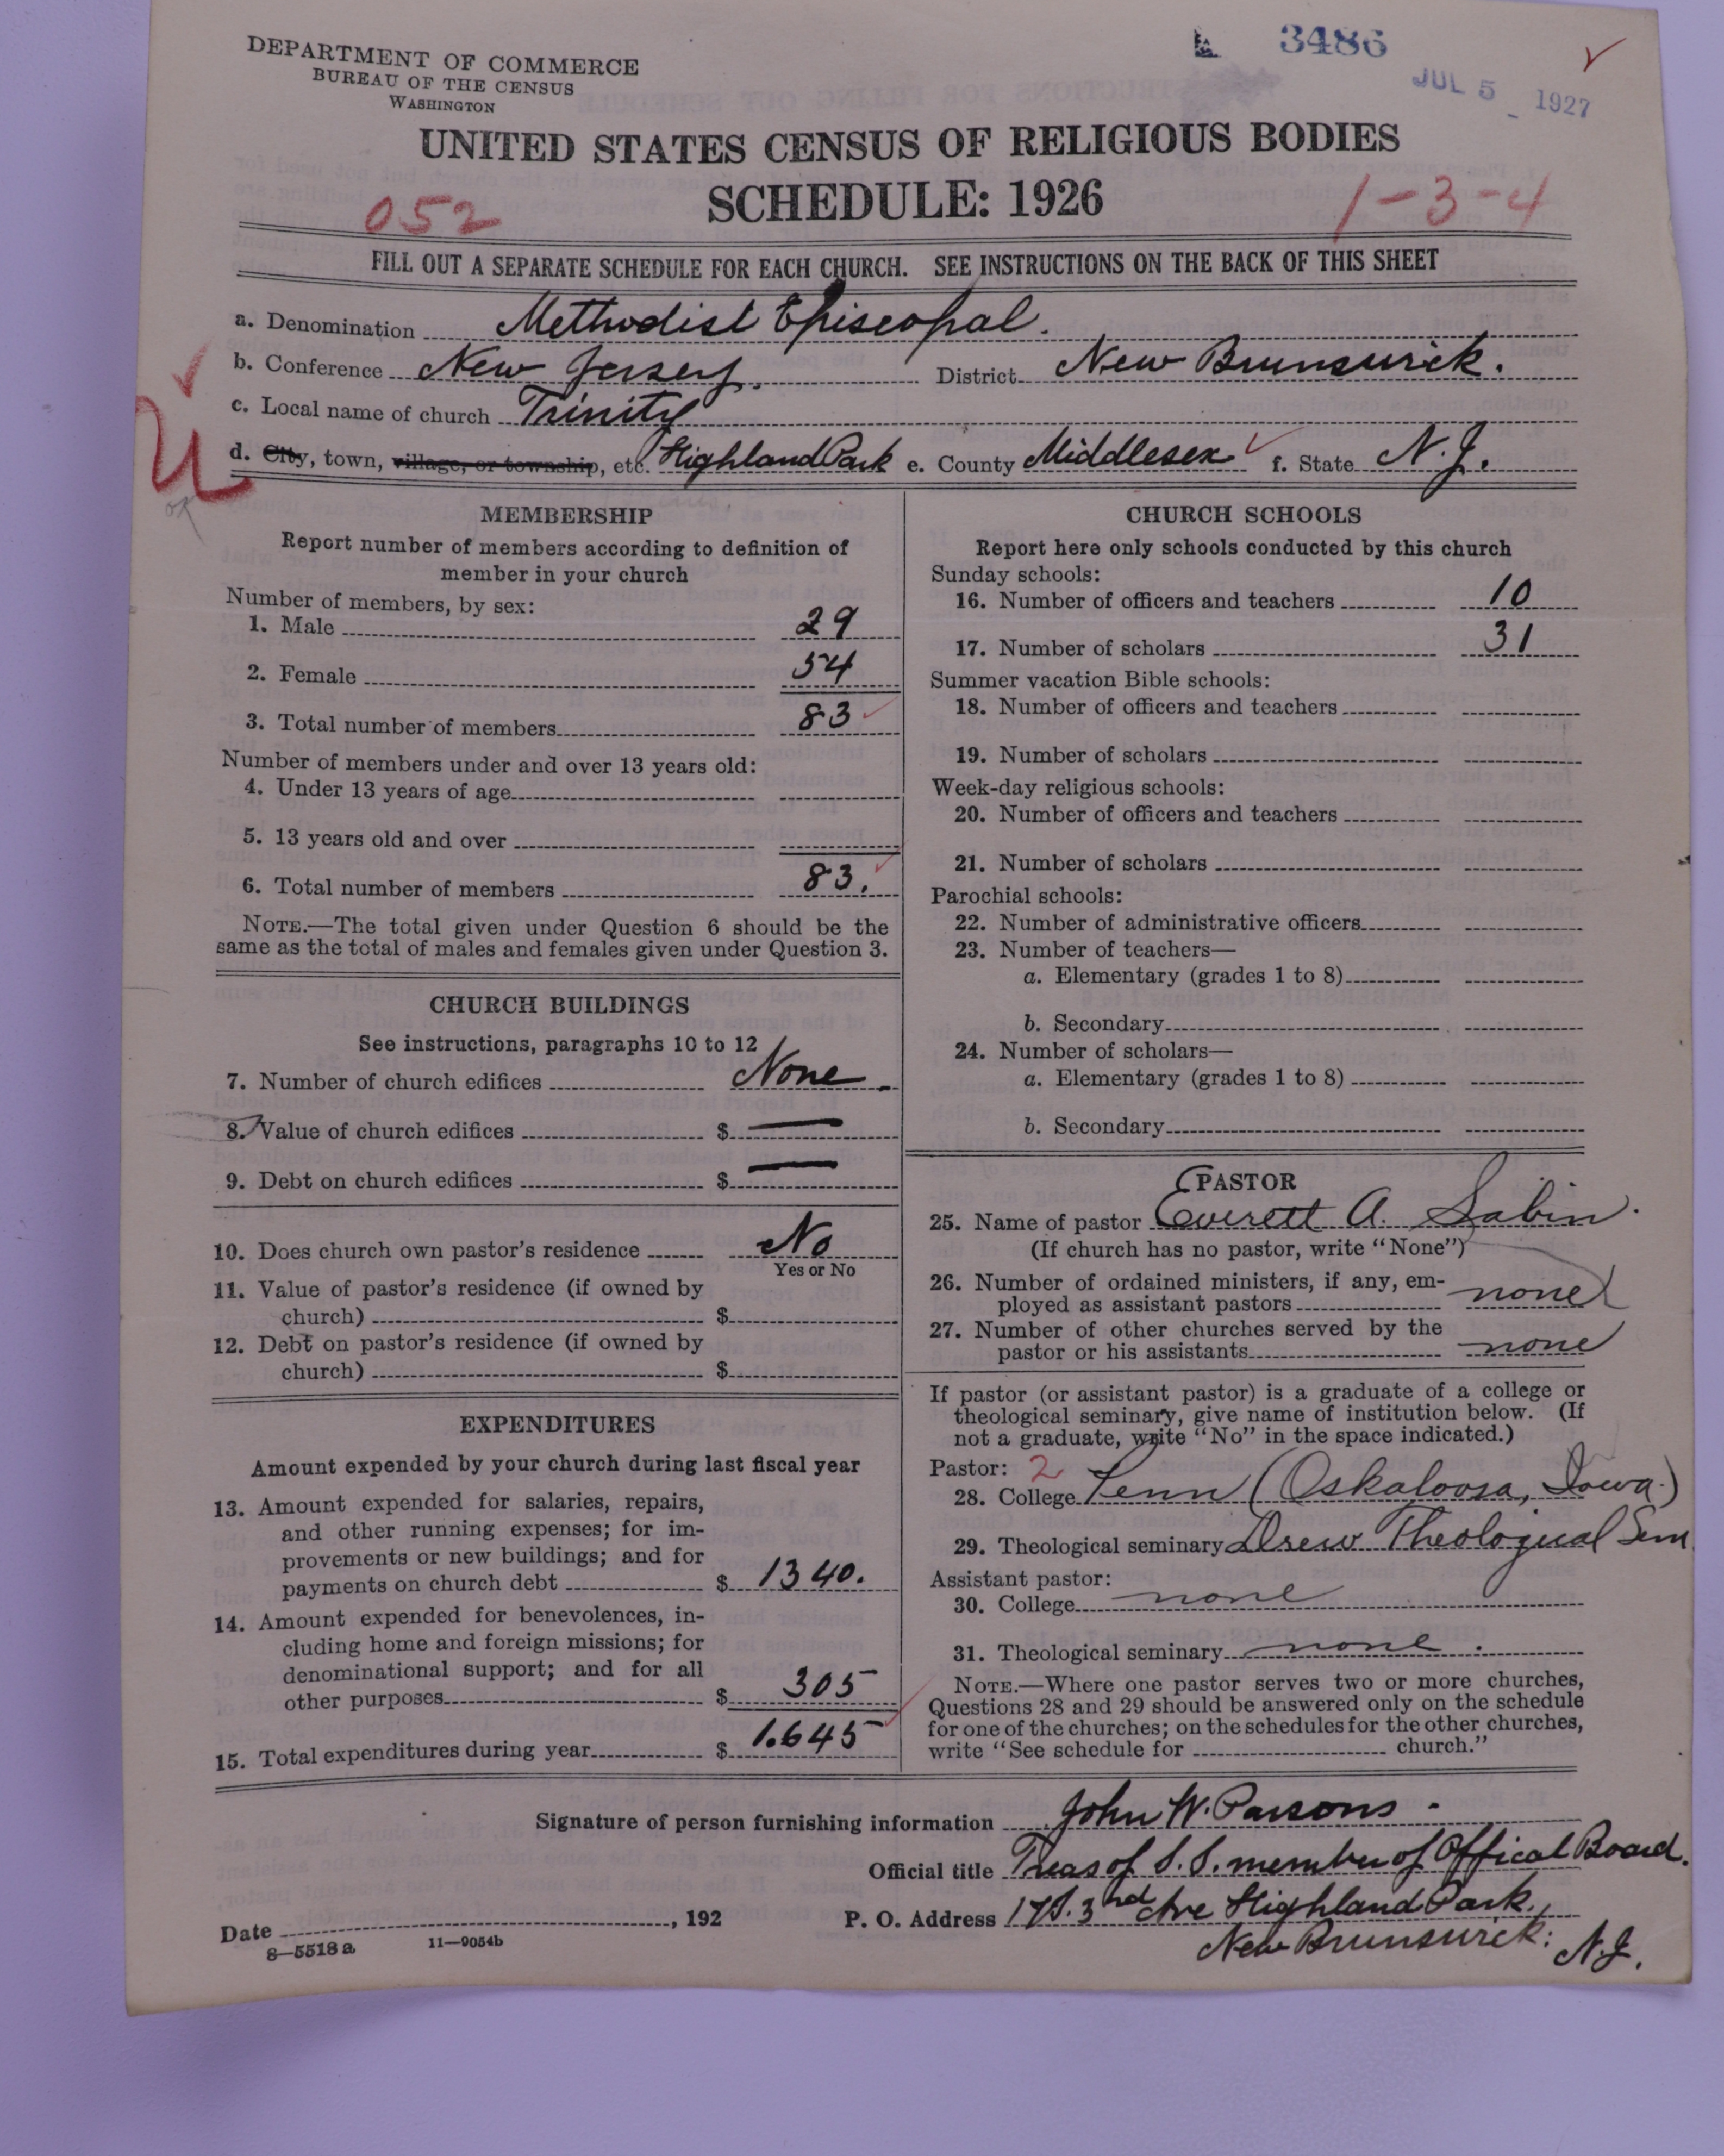 DEPARTMENT OF COMMERCE
BUREAU OF THE CENSUS
WASHINGTON
3486
JUL 5 1927
UNITED STATES CENSUS OF RELIGIOUS BODIES
SCHEDULE: 1926
052
1-3-4
FILL OUT A SEPARATE SCHEDULE FOR EACH CHURCH. SEE INSTRUCTIONS ON THE BACK OF THIS SHEET
a. Denomination Methodist Episcopal.
b. Conference New Jersey. District New Brunswick.
c. Local name of church Trinity
d. City, town, village, or township, etc. Highland Park e. County Middlesex f. State N.J.
U
OK
MEMBERSHIP
Report number of members according to definition of
member in your church
Number of members, by sex:
1. Male 29
2. Female 54
3. Total number of members 83
Number of members under and over 13 years old:
4. Under 13 years of age
5. 13 years old and over
6. Total number of members 83.
NOTE.—The total given under Question 6 should be the
same as the total of males and females given under Question 3.
CHURCH BUILDINGS
See instructions, paragraphs 10 to 12
7. Number of church edifices None
8. Value of church edifices $ —
9. Debt on church edifices $ —
10. Does church own pastor's residence No
Yes or No
11. Value of pastor's residence (if owned by
church) $
12. Debt on pastor's residence (if owned by
church) $
EXPENDITURES
Amount expended by your church during last fiscal year
13. Amount expended for salaries, repairs,
and other running expenses; for im-
provements or new buildings; and for
payments on church debt $ 1340.
14. Amount expended for benevolences, in-
cluding home and foreign missions; for
denominational support; and for all
other purposes $ 305
15. Total expenditures during year $ 1.645
CHURCH SCHOOLS
Report here only schools conducted by this church
Sunday schools:
16. Number of officers and teachers 10
17. Number of scholars 31
Summer vacation Bible schools:
18. Number of officers and teachers
19. Number of scholars
Week-day religious schools:
20. Number of officers and teachers
21. Number of scholars
Parochial schools:
22. Number of administrative officers
23. Number of teachers—
a. Elementary (grades 1 to 8)
b. Secondary
24. Number of scholars—
a. Elementary (grades 1 to 8)
b. Secondary
PASTOR
25. Name of pastor Everett A. Sabin.
(If church has no pastor, write "None")
26. Number of ordained ministers, if any, em-
ployed as assistant pastors none
27. Number of other churches served by the
pastor or his assistants none
If pastor (or assistant pastor) is a graduate of a college or
theological seminary, give name of institution below. (If
not a graduate, write "No" in the space indicated.)
Pastor: 2
28. College Penn (Oskaloosa, Iowa.)
29. Theological seminary Drew Theological Sem
Assistant pastor:
30. College none
31. Theological seminary none.
NOTE.—Where one pastor serves two or more churches,
Questions 28 and 29 should be answered only on the schedule
for one of the churches; on the schedules for the other churches,
write "See schedule for church."
Signature of person furnishing information John W. Parsons.
Official title Treas of S.S. member of Offical Board.
Date , 192 P. O. Address 17 S. 3rd Ave Highland Park,
New Brunswick: N.J.
8—5518 a 11—9054b